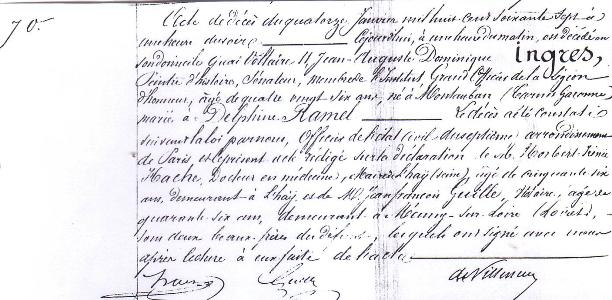 70.
L'Acte de décès du quatorze Janvier mil huit cent soixante Sept à
une heure du soir. Cejourd'hui, à une heure du matin, est décédé en
son domicile Quai Voltaire 11 Jean-Auguste Dominique Ingres,
Peintre d'histoire, Sénateur, Membre de l'Institut, Grand Officier de la Légion
d'honneur, âgé de quatre vingt six ans, né à Montauban (Tarn et Garonne)
marié à Delphine Ramel Le décès a été constaté
suivant la loi par nous, Officier de l'état civil du septième arrondissement
de Paris et le présent acte rédigé sur la déclaration de M. Norbert
Hache, Docteur en médecine, Maire de l'Haÿ (Seine), âgé de cinquante six
ans, demeurant à l'Haÿ, et de M. Jean françois Guille, Notaire, âgé de
quarante six ans, demeurant à Meung-sur-Loire (Loiret),
tous deux beaux-frères du défunt, lesquels ont signé avec nous
après lecture à eux faite de l'acte
Guille